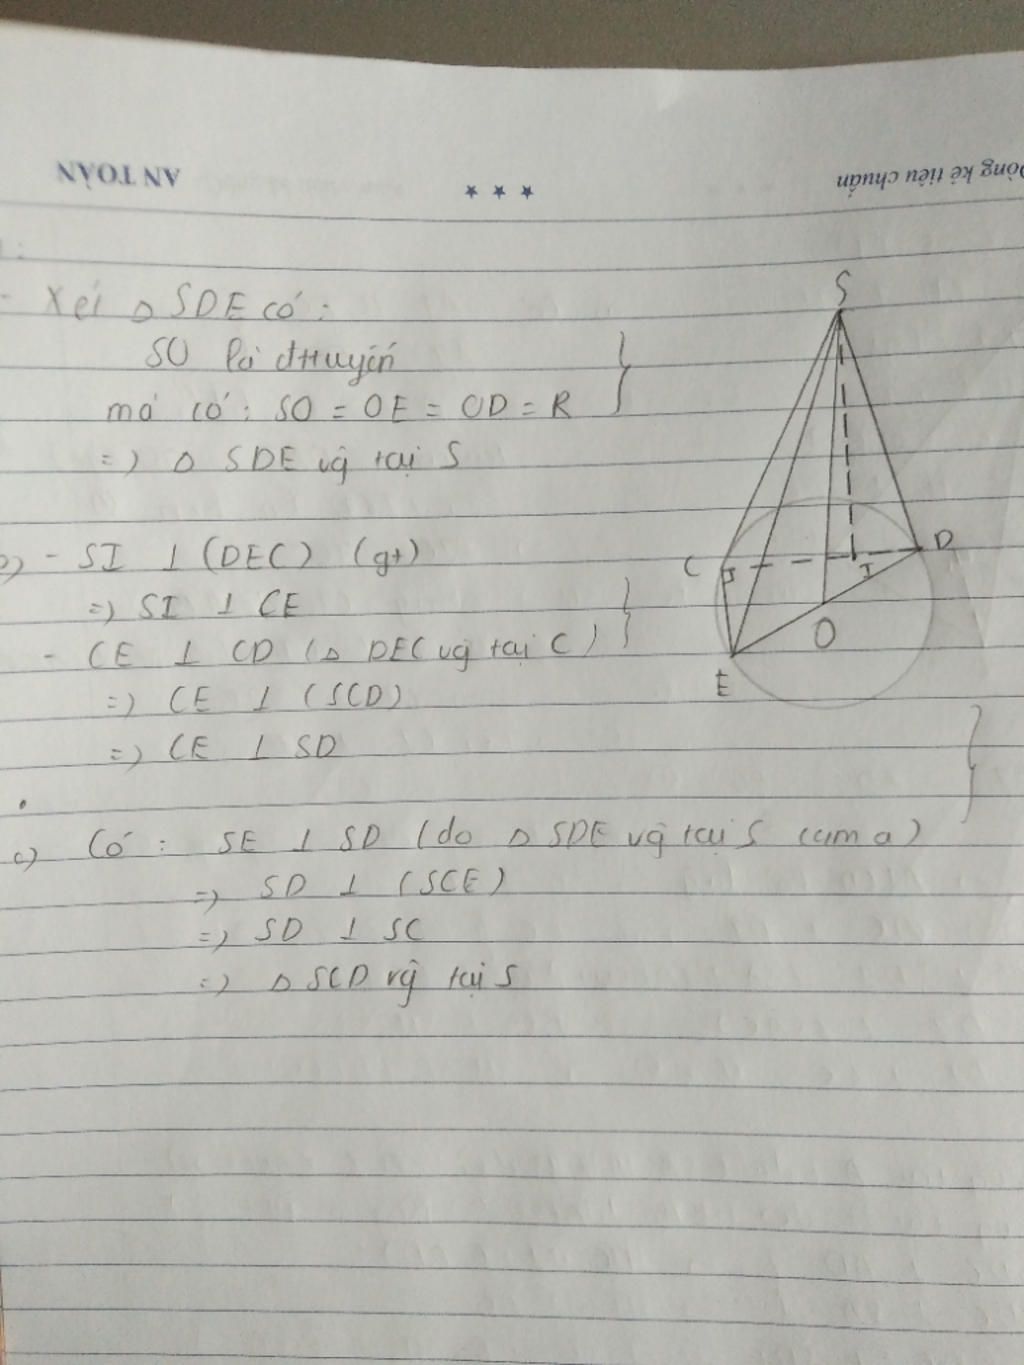 AN TOÀN
★ ★ ★
Dòng kẻ tiêu chuẩn
- Xét △ SDE có:
SO là đttuyến
mà có: SO = OE = OD = R
=> △ SDE vg̃ tại S
b) - SI ⊥ (DEC) (gt)
=> SI ⊥ CE
- CE ⊥ CD (△ DEC vg̃ tại C)
=> CE ⊥ (SCD)
=> CE ⊥ SD
c) Có: SE ⊥ SD (do △ SDE vg̃ tại S câu a)
=> SD ⊥ (SCE)
=> SD ⊥ SC
=> △ SCD vg̃ tại S
S
C
I
D
O
E